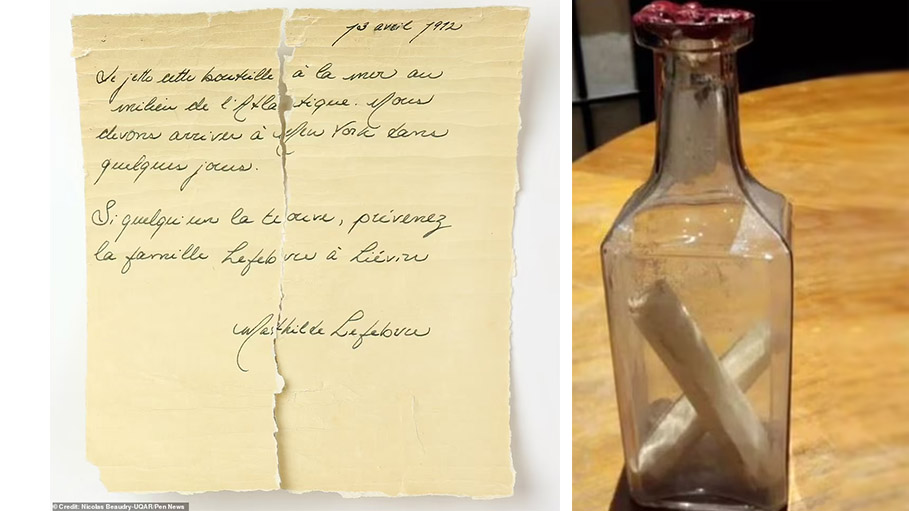 13 avril 1912
Je jette cette bouteille à la mer au
milieu de l'Atlantique. Nous
devons arriver à New York dans
quelques jours.
Si quelqu'un la trouve, prévenez
la famille Lefebvre à Liévin
Mathilde Lefebvre
© Credit: Nicolas Beaudry-UQAR/Pen News